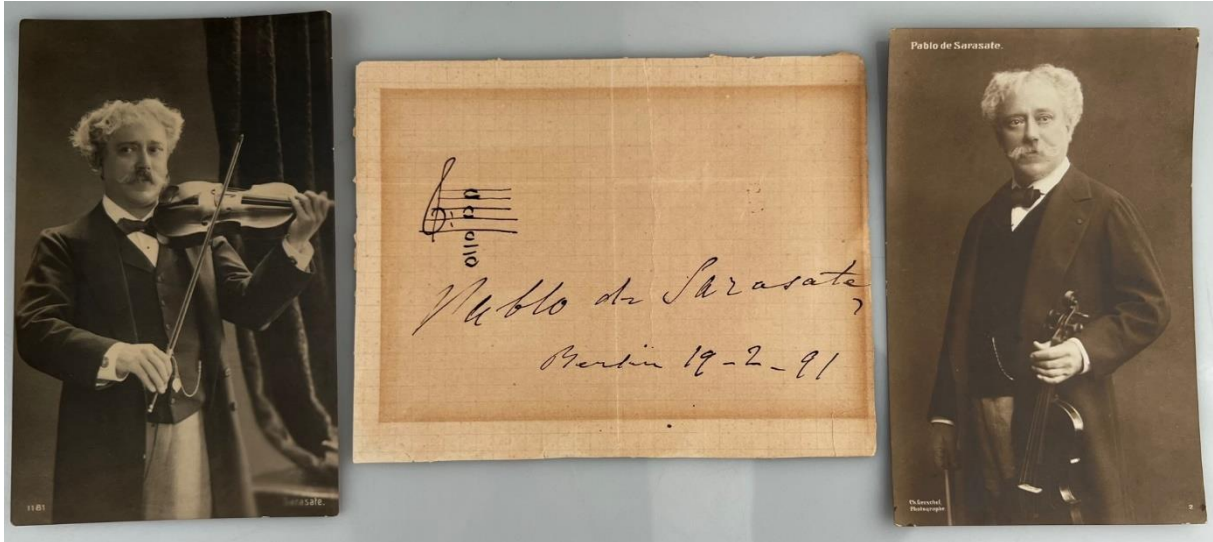 11-81
Sarasate.
Pablo de Sarasate
Berlin 19-2-91
Pablo de Sarasate.
Ph Gerschel
Photographe
2